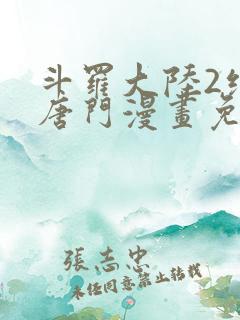 斗羅大陸2
唐門漫畫免
張志忠
未經同意禁止轉載